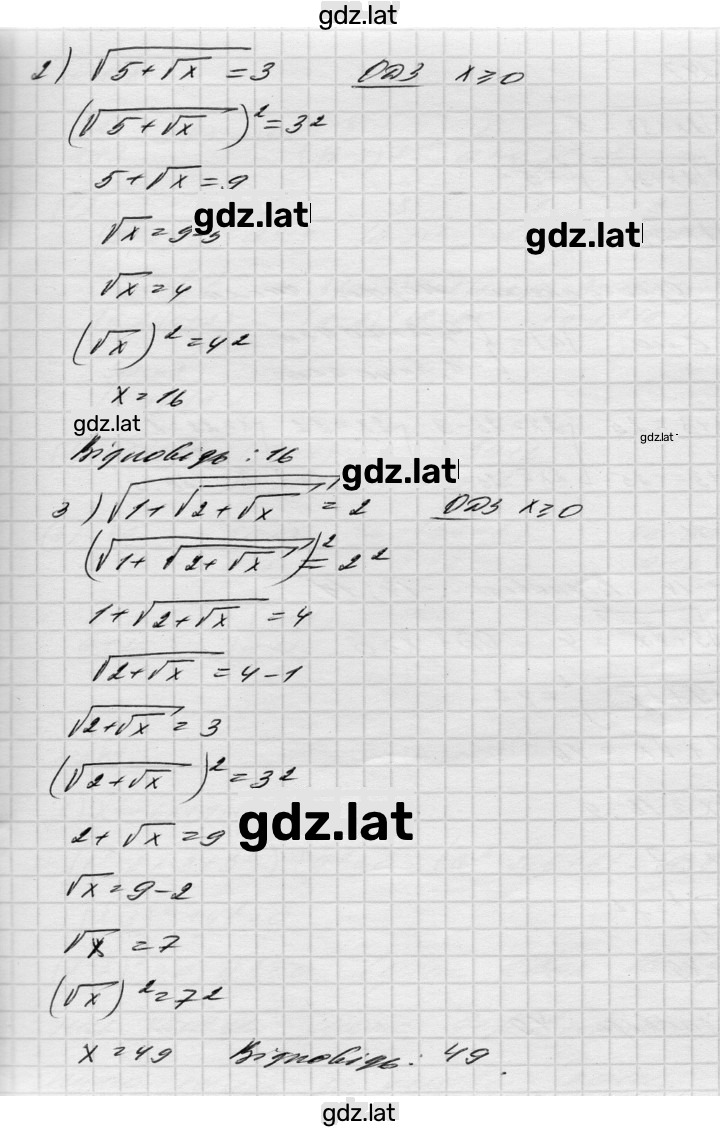 gdz.lat
2) √(5+√x) = 3   ОДЗ   x ≥ 0
(√(5+√x))² = 3²
5+√x = 9
gdz.lat
√x = 9-5
gdz.lat
√x = 4
(√x)² = 4²
x = 16
gdz.lat
gdz.lat
Відповідь : 16
gdz.lat
3) √(1+√(2+√x)) = 2   ОДЗ   x ≥ 0
(√(1+√(2+√x)))² = 2²
1+√(2+√x) = 4
√(2+√x) = 4-1
√(2+√x) = 3
(√(2+√x))² = 3²
gdz.lat
2+√x = 9
√x = 9-2
√x = 7
(√x)² = 7²
x = 49   Відповідь: 49.
gdz.lat